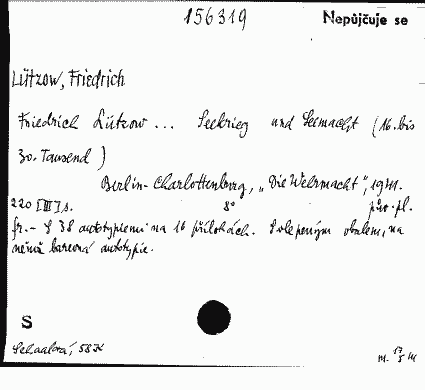 156319
Nepůjčuje se
Lützow, Friedrich
Friedrich Lützow ... Seekrieg und Seemacht (16. bis
30. Tausend)
Berlin-Charlottenburg, „Die Wehrmacht", 1941.
220 [III] s. 8° pův. pl.
fr. - S 38 autotypiemi na 16 přílohách. S olepeným obalem, na
němž barevná autotypie.
S
58 K
M. 17/5